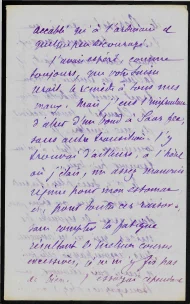 accablé qu'à l'ordinaire et
quelque peu découragé.
J'avais espéré, comme
toujours, que votre
serait le remède à tous mes
maux. Mais j'eus l'imprudence
d'aller d'un bond à
sans aucune transition. J'y
trouvai d'ailleurs, à l'hôtel
où j'étais, un assez mauvais
régime pour mon estomac
et, pour toutes ces raisons,
sans compter la fatigue
résultant de
excursions, je ne m'y fis pas
de bien.